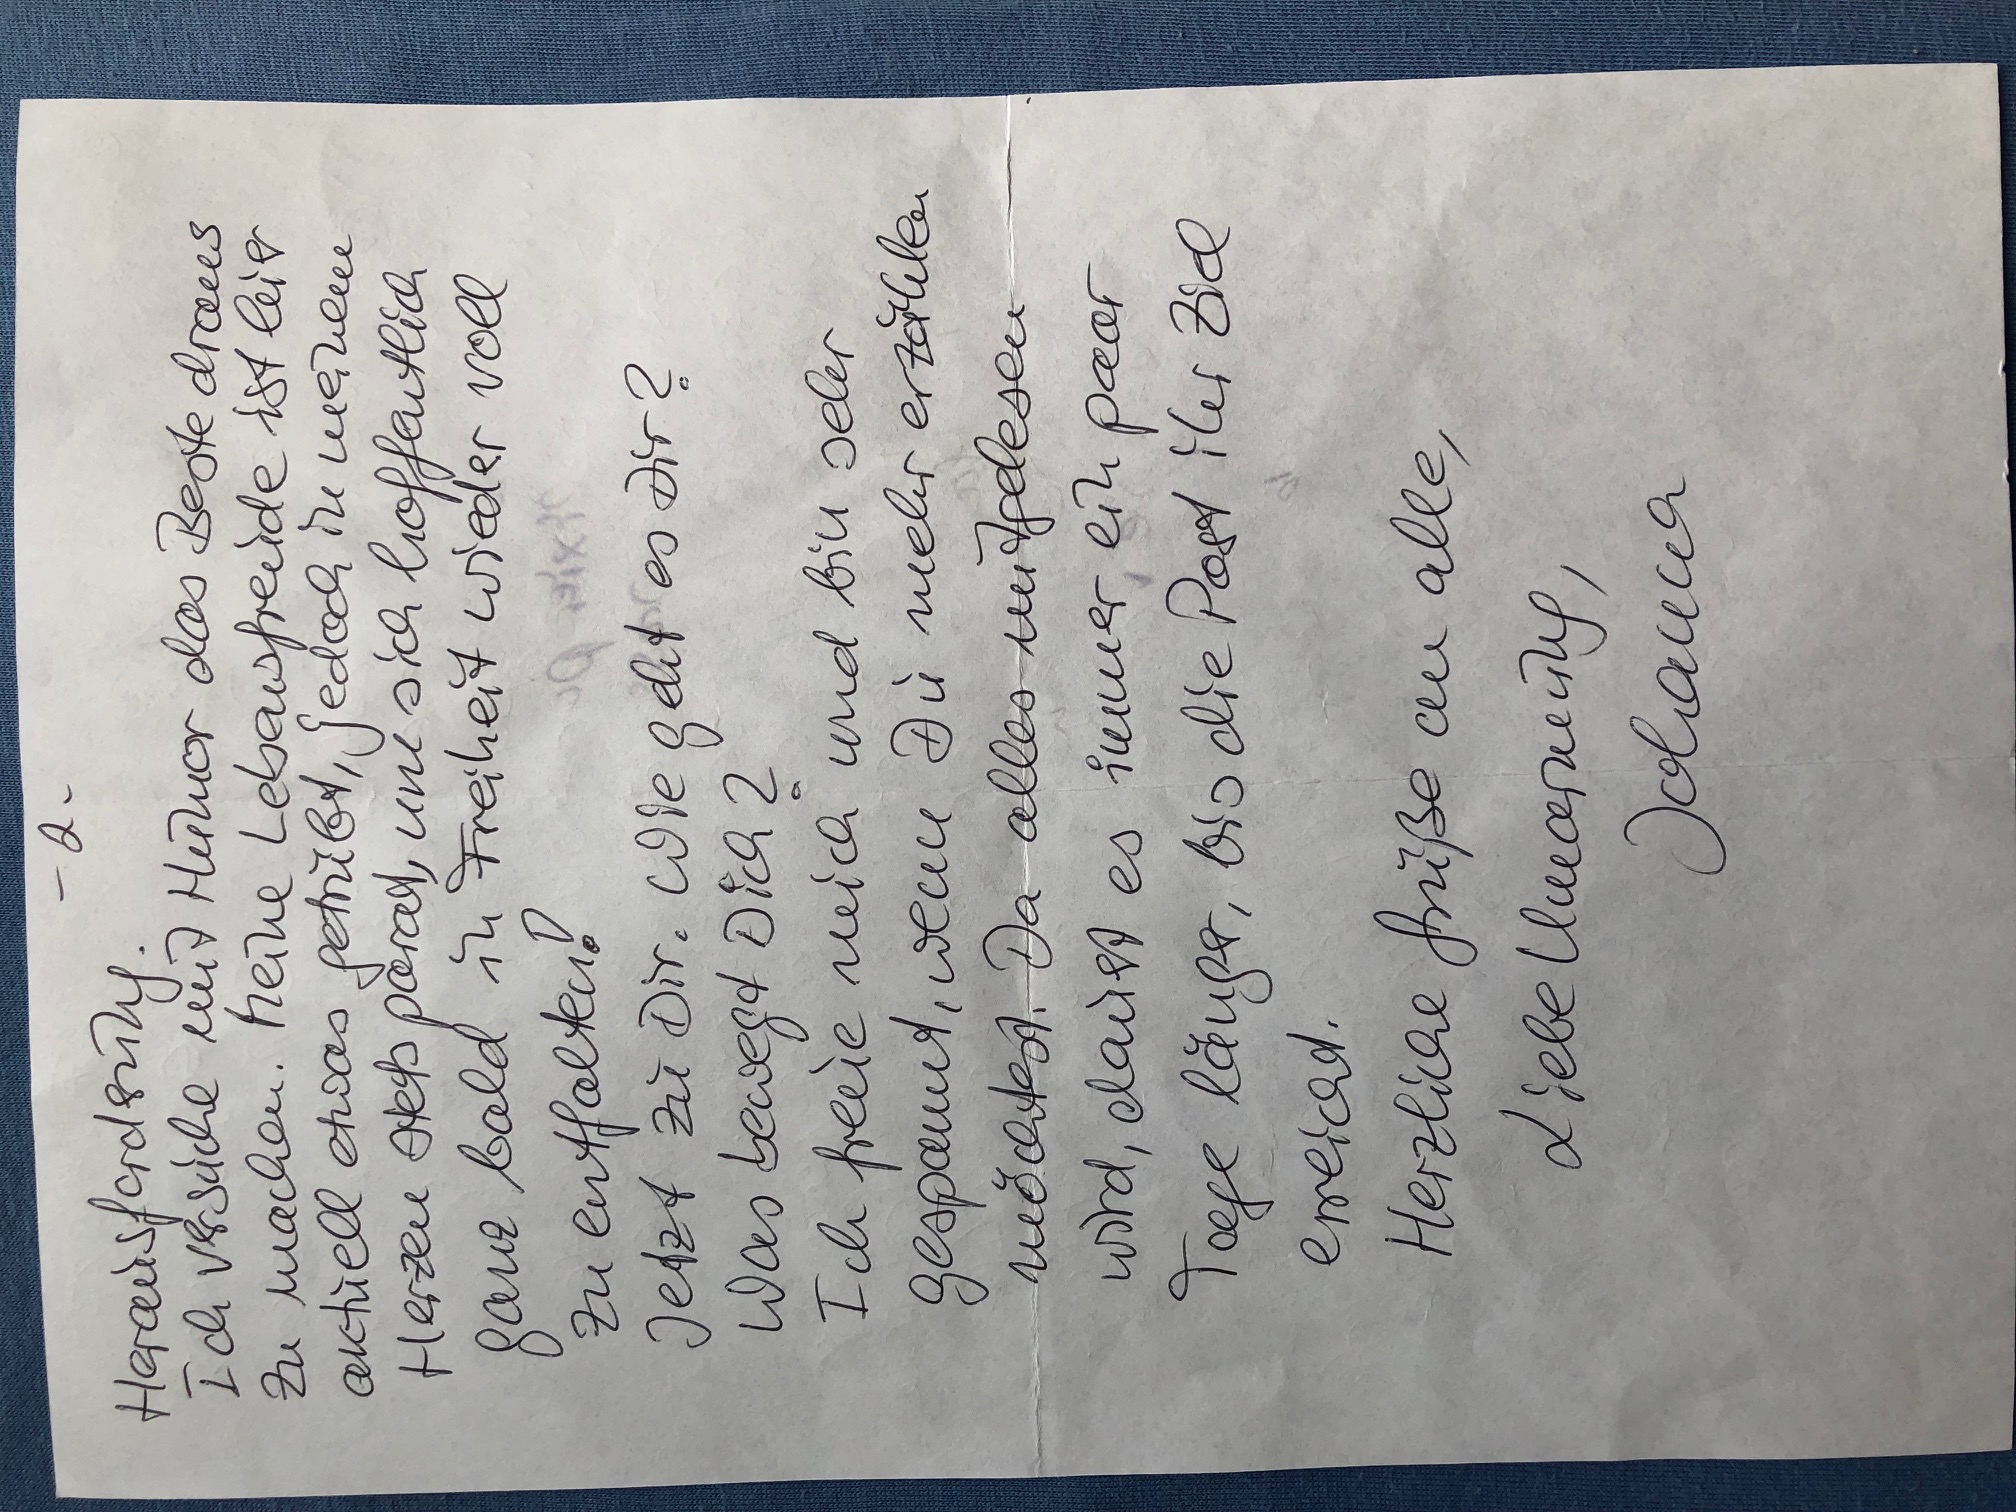 - 2 -
Herausforderung.
Ich versuche mit Humor das Beste draus
zu machen. Meine Lebensfreude ist hier
aktuell etwas getrübt, jedoch in meinem
Herzen stets parat, um sich hoffentlich
ganz bald in Freiheit wieder voll
zu entfalten!
Jetzt zu Dir. Wie geht es Dir?
Was bewegt Dich?
Ich freue mich und bin sehr
gespannt, wenn Du mehr erzählen
möchtest. Da alles mitgelesen
wird, dauert es immer ein paar
Tage länger, bis die Post ihr Ziel
erreicht.
Herzliche Grüße an alle,
Liebe Umarmung,
Johanna